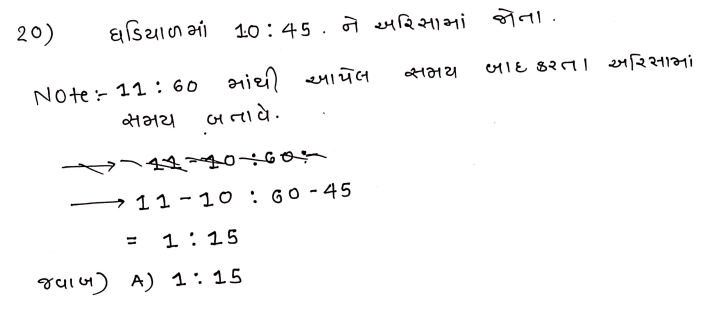 20) ઘડિયાળમાં 10:45. ને અરિસામાં જોતા.
Note:- 11:60 માંથી આપેલ સમય બાદ કરતા અરિસામાં
સમય બનાવે.
→ 11-10:60-
→ 11-10 : 60-45
= 1:15
જવાબ) A) 1:15